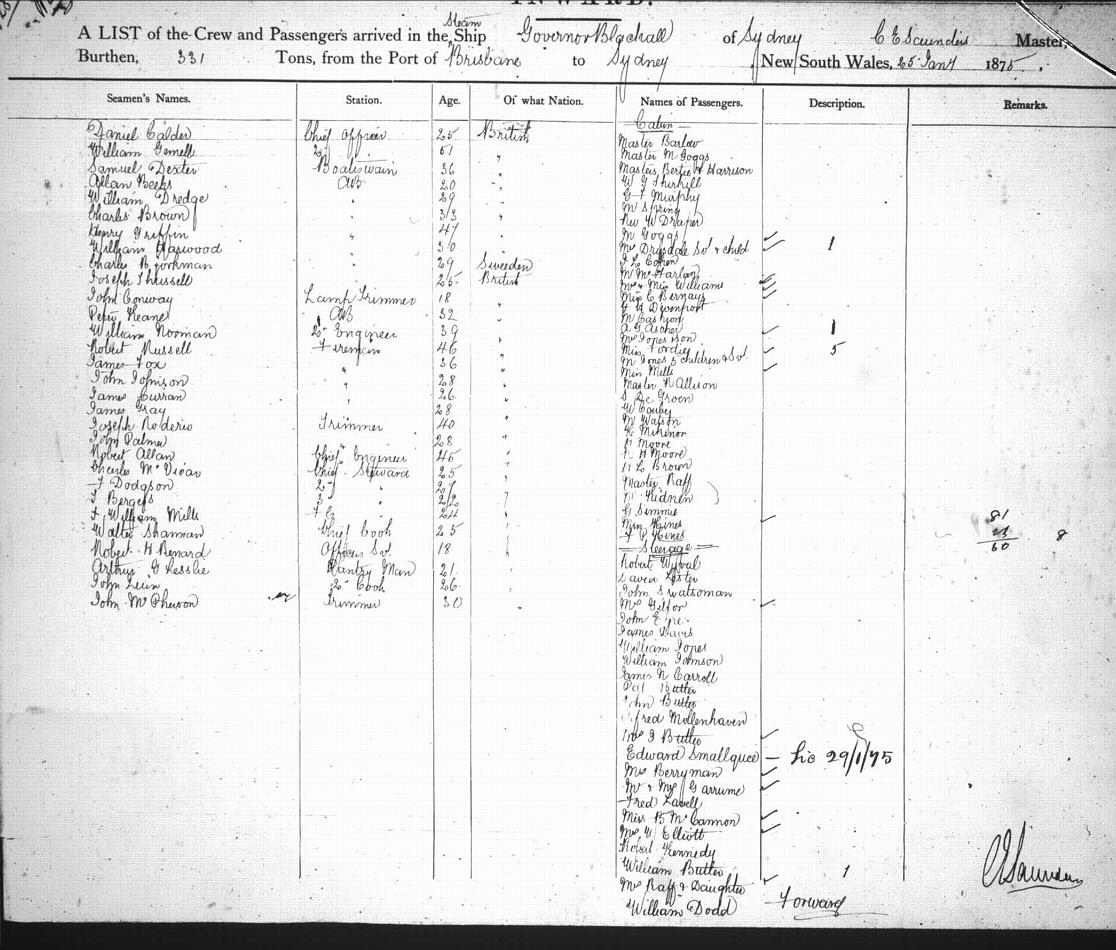 INWARD.
A LIST of the Crew and Passengers arrived in the Steam Ship Governor Blackall of Sydney C E Saunders Master,
Burthen, 331 Tons, from the Port of Brisbane to Sydney New South Wales, 25 Jany 1875.
Seamen's Names. Station. Age. Of what Nation. Names of Passengers. Description. Remarks.
Daniel Calder Chief Officer 25 British
William Gemell 2 51 "
Samuel Dexter Boatswain 36 "
Allan Beeks AB 20 "
William Dredge " 29 "
Charles Brown " 33 "
Henry Griffin 47 "
William Haswood " 30 "
Charles Bjorkman 29 Sweeden
Joseph Thrussell 25 British
John Conway Lamp Trimmer 18 "
Peter Keane AB 32 "
William Noorman 2 Engineer 39 "
Robert Russell Fireman 46 "
James Fox " 36 "
John Johnson " 28 "
James Curran " 26 "
James Gray 28 "
Joseph Roderio Trimmer 40 "
John Palmer 28 "
Robert Allan Chief Engineer 45 "
Charles McVicar Chief Steward 25 "
Dodgson 2 " 27 "
Bergess 3 " 22 "
William Mills 24 "
Walter Shannan Chief Cook 25
Robert H Renard Officers Svt 18
Arthur G Lesslie Pantry Man 21
John Lewin 2 Cook 26
John McPherson Trimmer 30 "
Cabin
Master Barlow
Master McGoggs
Masters Bertie & Harrison
W G Thirkill
G F Murphy
M Spring
Rev W Draper
M Goggs
Mrs Drysdale Svt & child 1
Cohen
M McHarlan
Mr & Miss Williams
Miss C Bernays
Devenport
M Cashion
A G Ascher 1
Miss Fordie
M Jones 5 children & Svt 5
Miss Mills
Master R Allison
S De Groen
W Cowley
M Watson
McKinnor
Moore
H Moore
Brown
Master Raff
Kidner
G Simmie
Miss Hines
Hines
Steerage
81
60
8
Robert
Laven Lester
John S Waltoman
Mrs Gilfor
John
James Davis
William Jones
William Johnson
James N Carroll
Butler
John Butler
Alfred Mollenhaven
Mrs J Butler
Edward Smallquce — Lic 29/1/75
Mrs Berryman
Mr & Mrs Garrume
Fred Lavell
Miss B McCannon
Mrs W Elliott
Robert Kennedy
William Butler 1
Mrs Raff & Daughter
William Dodd Forward
C E Saunders